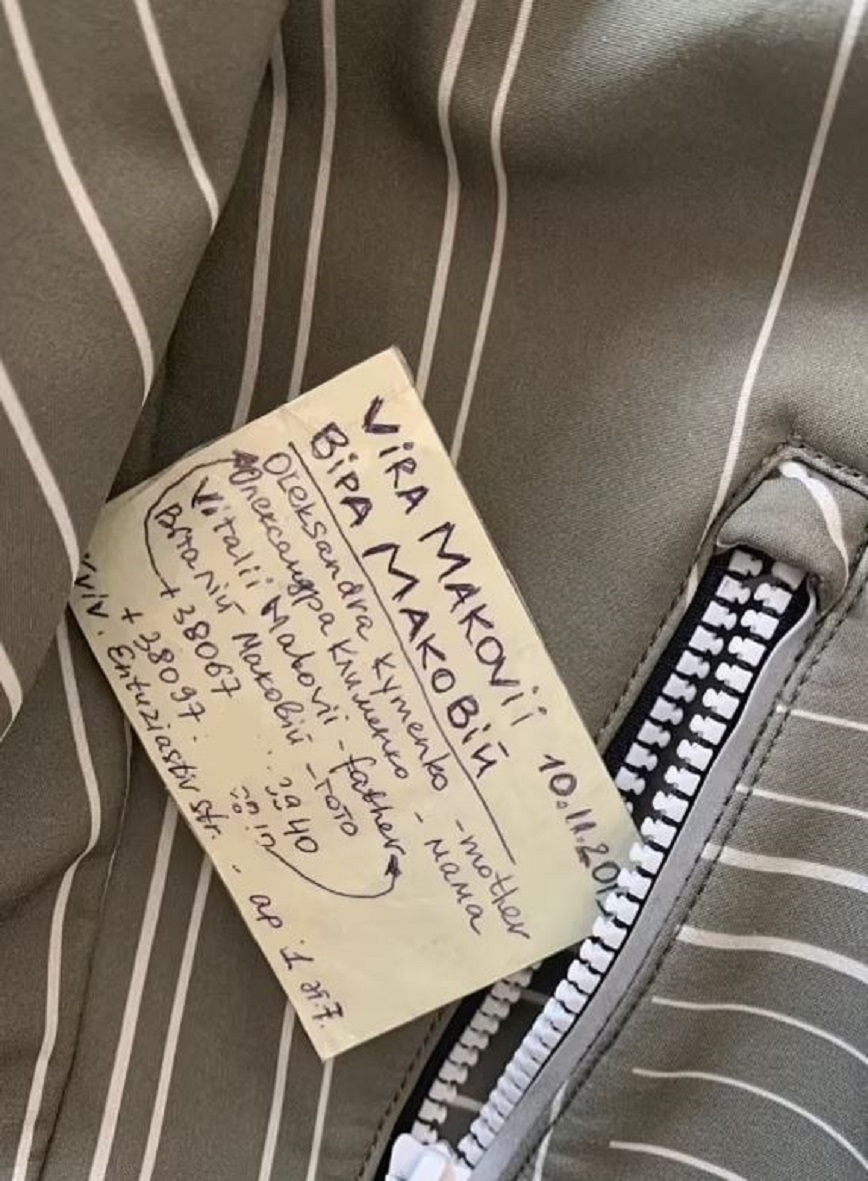 ViRA MAKOVii 10.11.20
ВіРА МАКОВіЙ
Oleksandra Kymenko - mother
Олександра Клименко - мама
Vitalii Makovii - father
Віталій Маковій - тото
+38067 29 40
+38097
Entuziastiv str. - ap 1